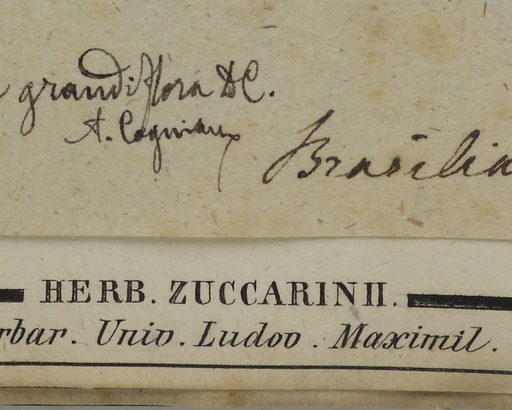 grandiflora DC.
A. Cogniaux
Brasilia
HERB. ZUCCARINII.
rbar. Univ. Ludov. Maximil.